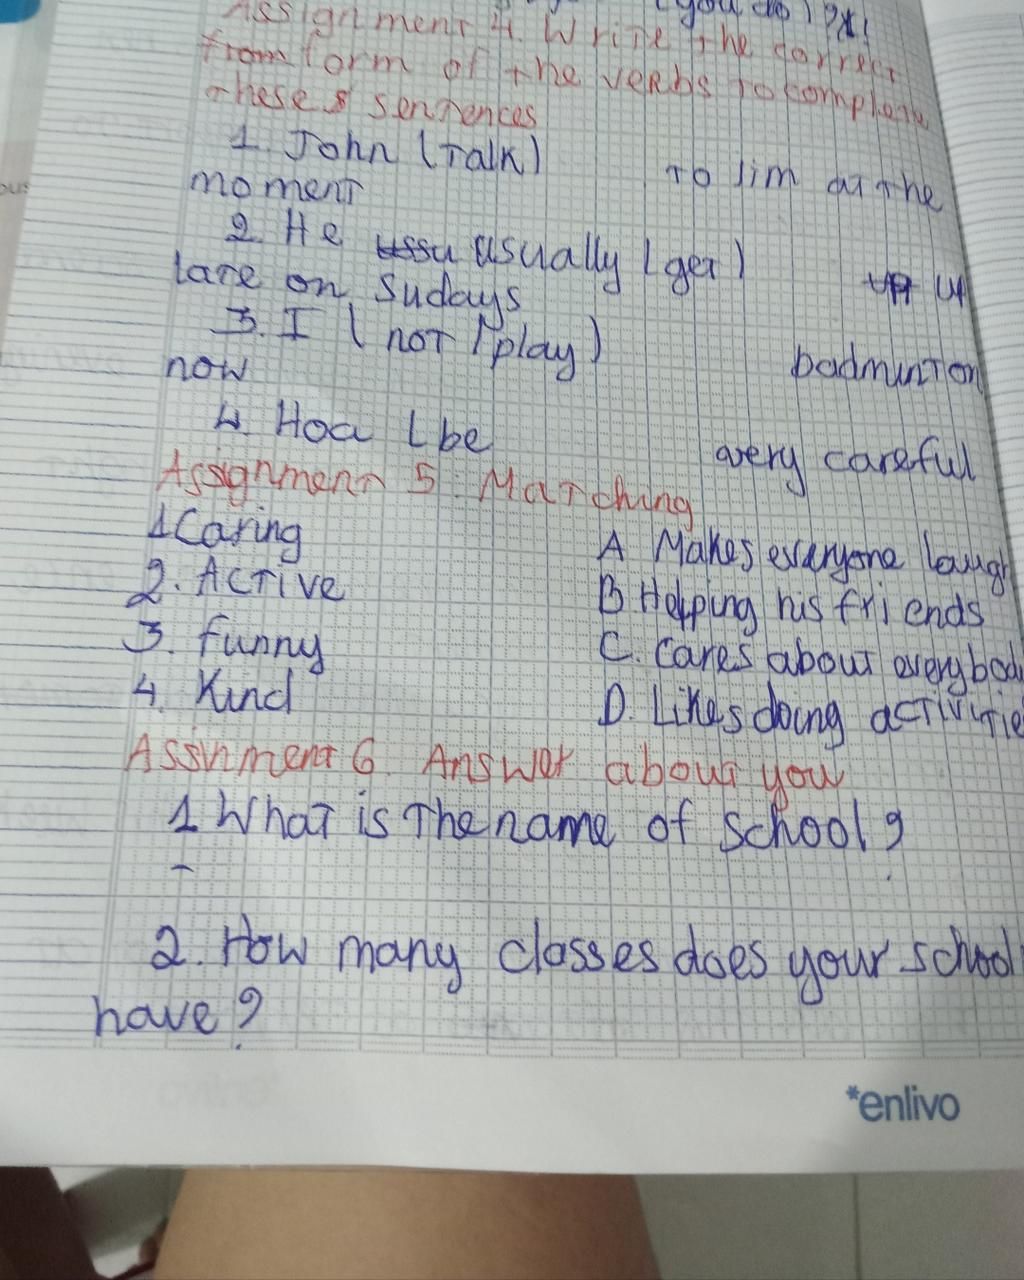 (you do) ?
Assignment 4. Write the correct
from form of the verbs to complete
these sentences
1. John (talk) to Jim at the
moment
2. He ussu usually (get) up up
late on Sudays
3. I (not / play) badminton
now
4. Hoa (be very careful
Assignment 5: Matching
1 Caring A Makes everyone laugh
2. Active B Helping his friends
3. funny C. Cares about everybod
4. Kind D. Likes doing activitie
Assinment 6. Answer about you
1. What is the name of school?
-
2. How many classes does your school
have?
*enlivo